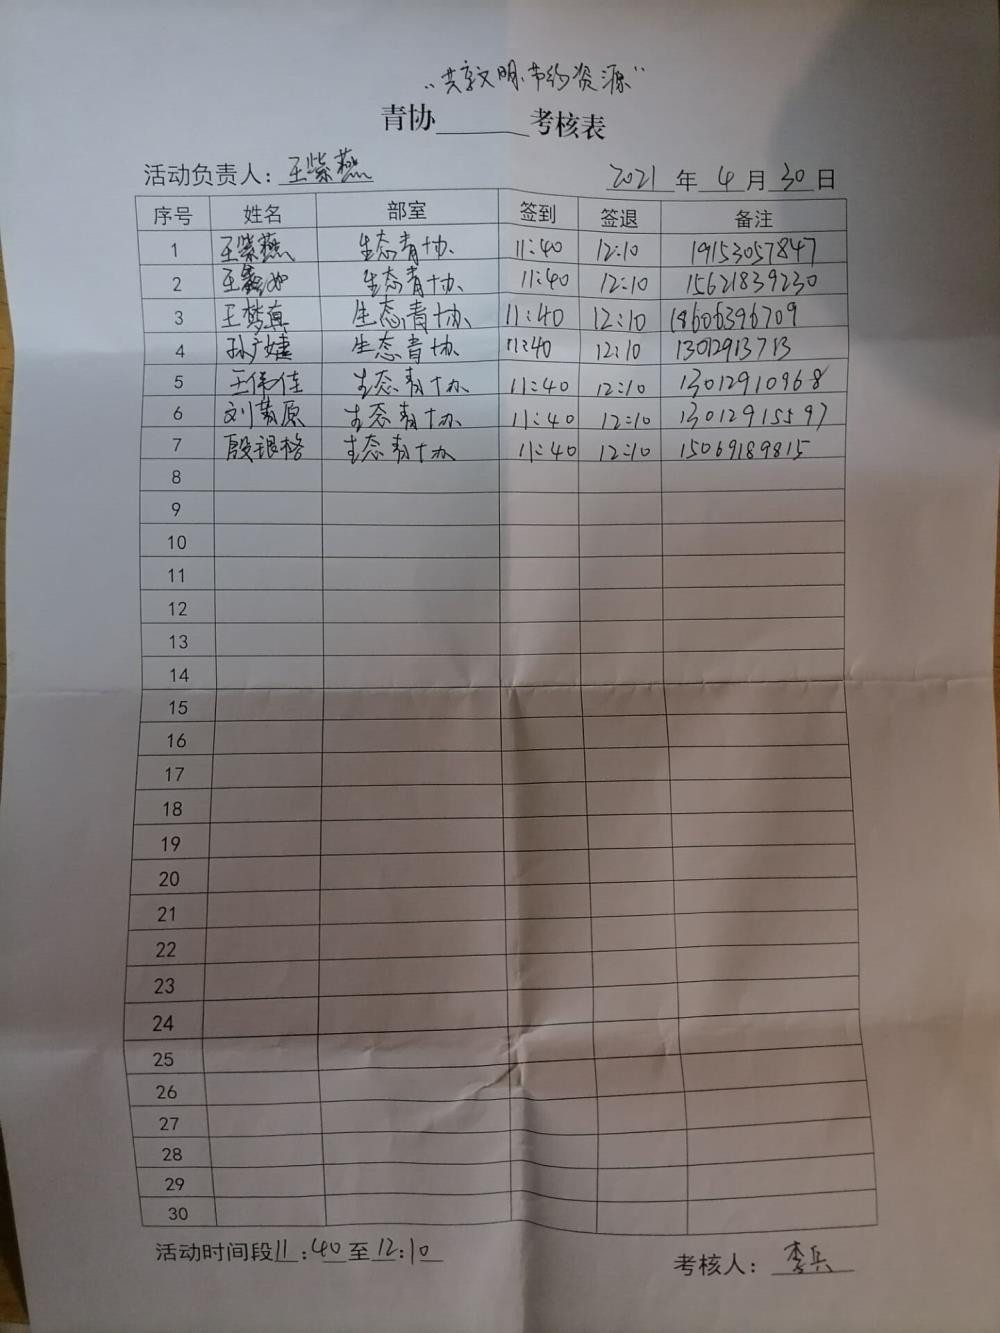 “共享文明.节约资源”
青协______考核表
活动负责人：王紫燕 2021年4月30日
序号 姓名 部室 签到 签退 备注
1 王紫燕 生态青协 11:40 12:10 19153057847
2 生态青协 11:40 12:10 15621839230
3 王梦真 生态青协 11:40 12:10 18606396709
4 孙广婕 生态青协 11:40 12:10 13012913713
5 王伟佳 生态青协 11:40 12:10 13012910968
6 刘原 生态青协 11:40 12:10 13012915597
7 殷银格 生态青协 11:40 12:10 15069189815
8
9
10
11
12
13
14
15
16
17
18
19
20
21
22
23
24
25
26
27
28
29
30
活动时间段11:40至12:10 考核人：李兵